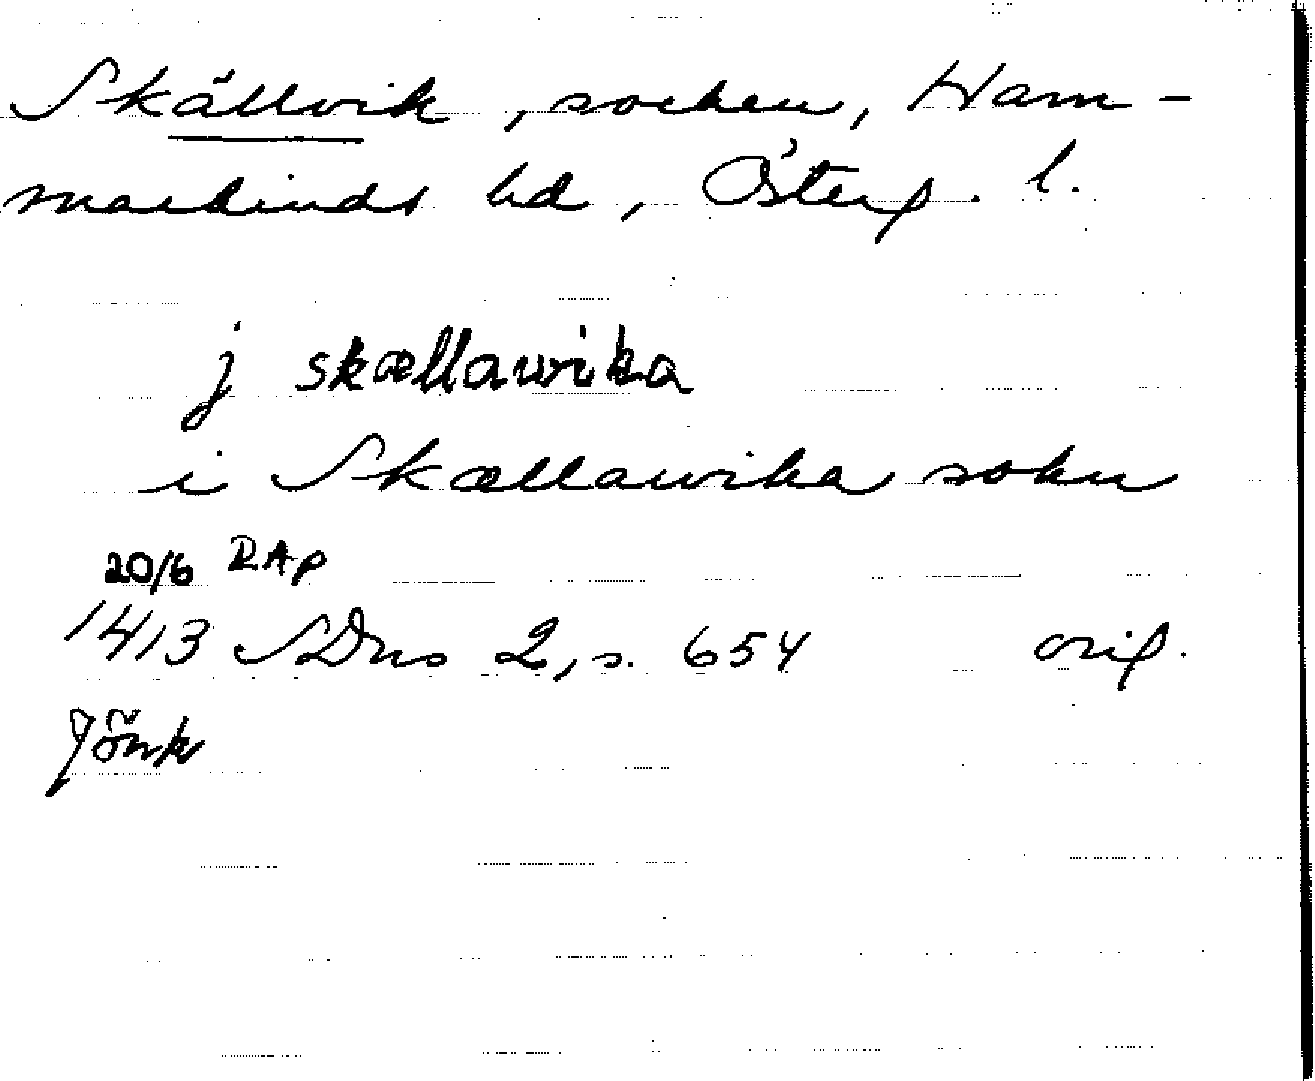 Skällvik, socken, Ham-
markinds hd, Österg. l.
j skællawika
i Skællawika sokn
20/6 RAp
1413 SDns 2, s. 654 orig.
Jönk